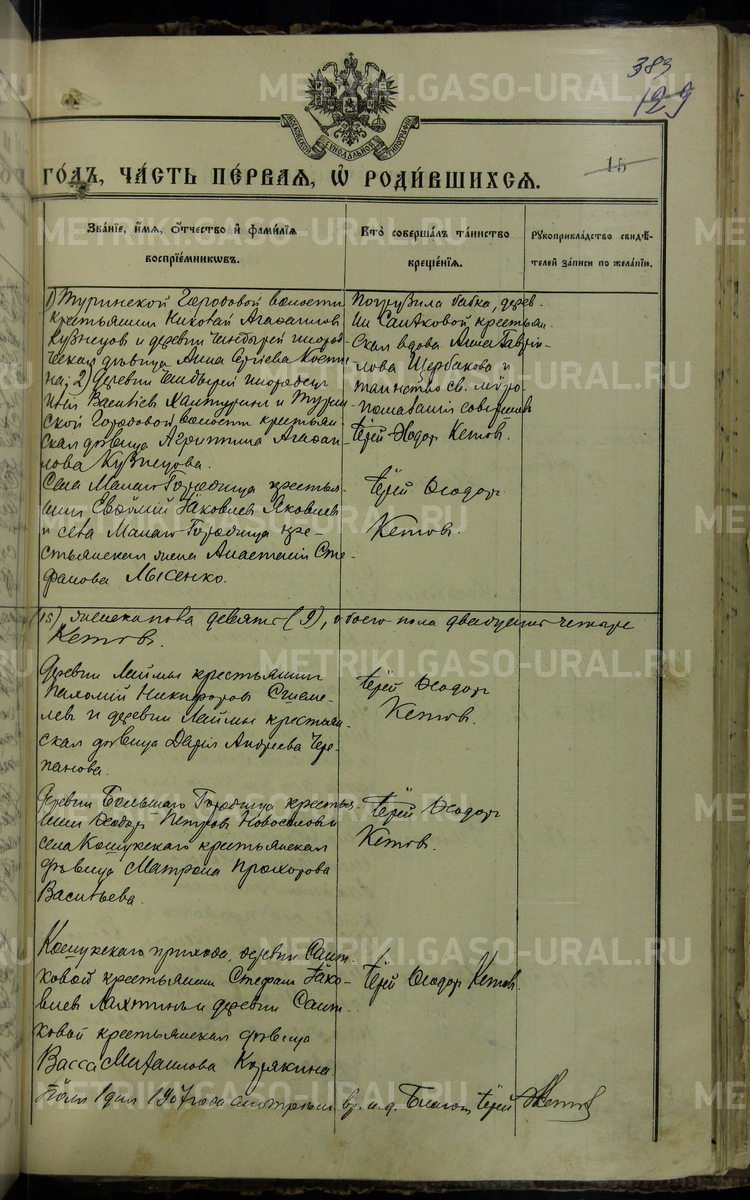 383
129
15
МОСКОВСКОЙ СѴНОДАЛЬНОЙ ТИПОГРАФІИ
ГО́ДЪ, ЧА́СТЬ ПЕ́РВАЯ, Ѡ҆ РОДИ́ВШИХСЯ.
Зва́нїе, и҆́мя, ѻ҆́тчество и҆ фами́лїя
воспрїе́мникѡвъ.
Кто̀ соверша́лъ та́инство
креще́нїя.
Рꙋкоприкла́дство свидѣ́-
телей за́писи по жела́нїю.
1) Туринской Городовой волости
крестьянинъ Николай Агафангеловъ
Кузнецовъ и деревни инород-
ческая дѣвица Анна Сергіева
на; 2) Деревни инородецъ
Василіевъ и Турин-
ской Городовой волости крестьян-
ская дѣвица Агриппина
Кузнецова.
Погрузила бабка, дерев-
ни Саитковой крестьян-
ская вдова Анна Гаврі-
лова Щербакова и
таинство св. мѵро-
помазанія совершилъ
Іерей Ѳеодоръ Кетовъ.
Села Малаго Городища крестья-
нинъ Евѳимій Іаковлевъ Яковлевъ
и села Малаго Городища кре-
стьянская жена Анастасія Сте-
фанова Лысенко.
Іерей Ѳеодоръ
Кетовъ.
(15) женска пола девять (9), обоего пола двадцать четыре
Кетовъ.
Деревни Лаймы крестьянинъ
Пахомій Никифоровъ
и деревни Лаймы крестьян-
ская дѣвица Дарія Андреева Чере-
панова.
Іерей Ѳеодоръ
Кетовъ.
Деревни Большаго Городища крестья-
нинъ Ѳеодоръ Петровъ Новоселовъ и
села Кошукскаго крестьянская
дѣвица Матрона Прохорова
Васильева.
Іерей Ѳеодоръ
Кетовъ.
Кошукскаго прихода, деревни Саит-
ковой крестьянинъ Стефанъ Іако-
влевъ Лихтинъ и деревни Саит-
ковой крестьянская дѣвица
Васса Михаилова Корякина
Іерей Ѳеодоръ Кетовъ.
Іюля 1 дня 1907 года смотрѣлъ в. м. д. Благоч. Іерей
METRIKI.GASO-URAL.RU